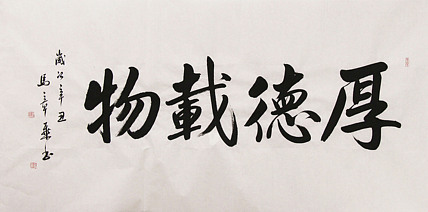 厚德載物
歲次辛丑
馬章書